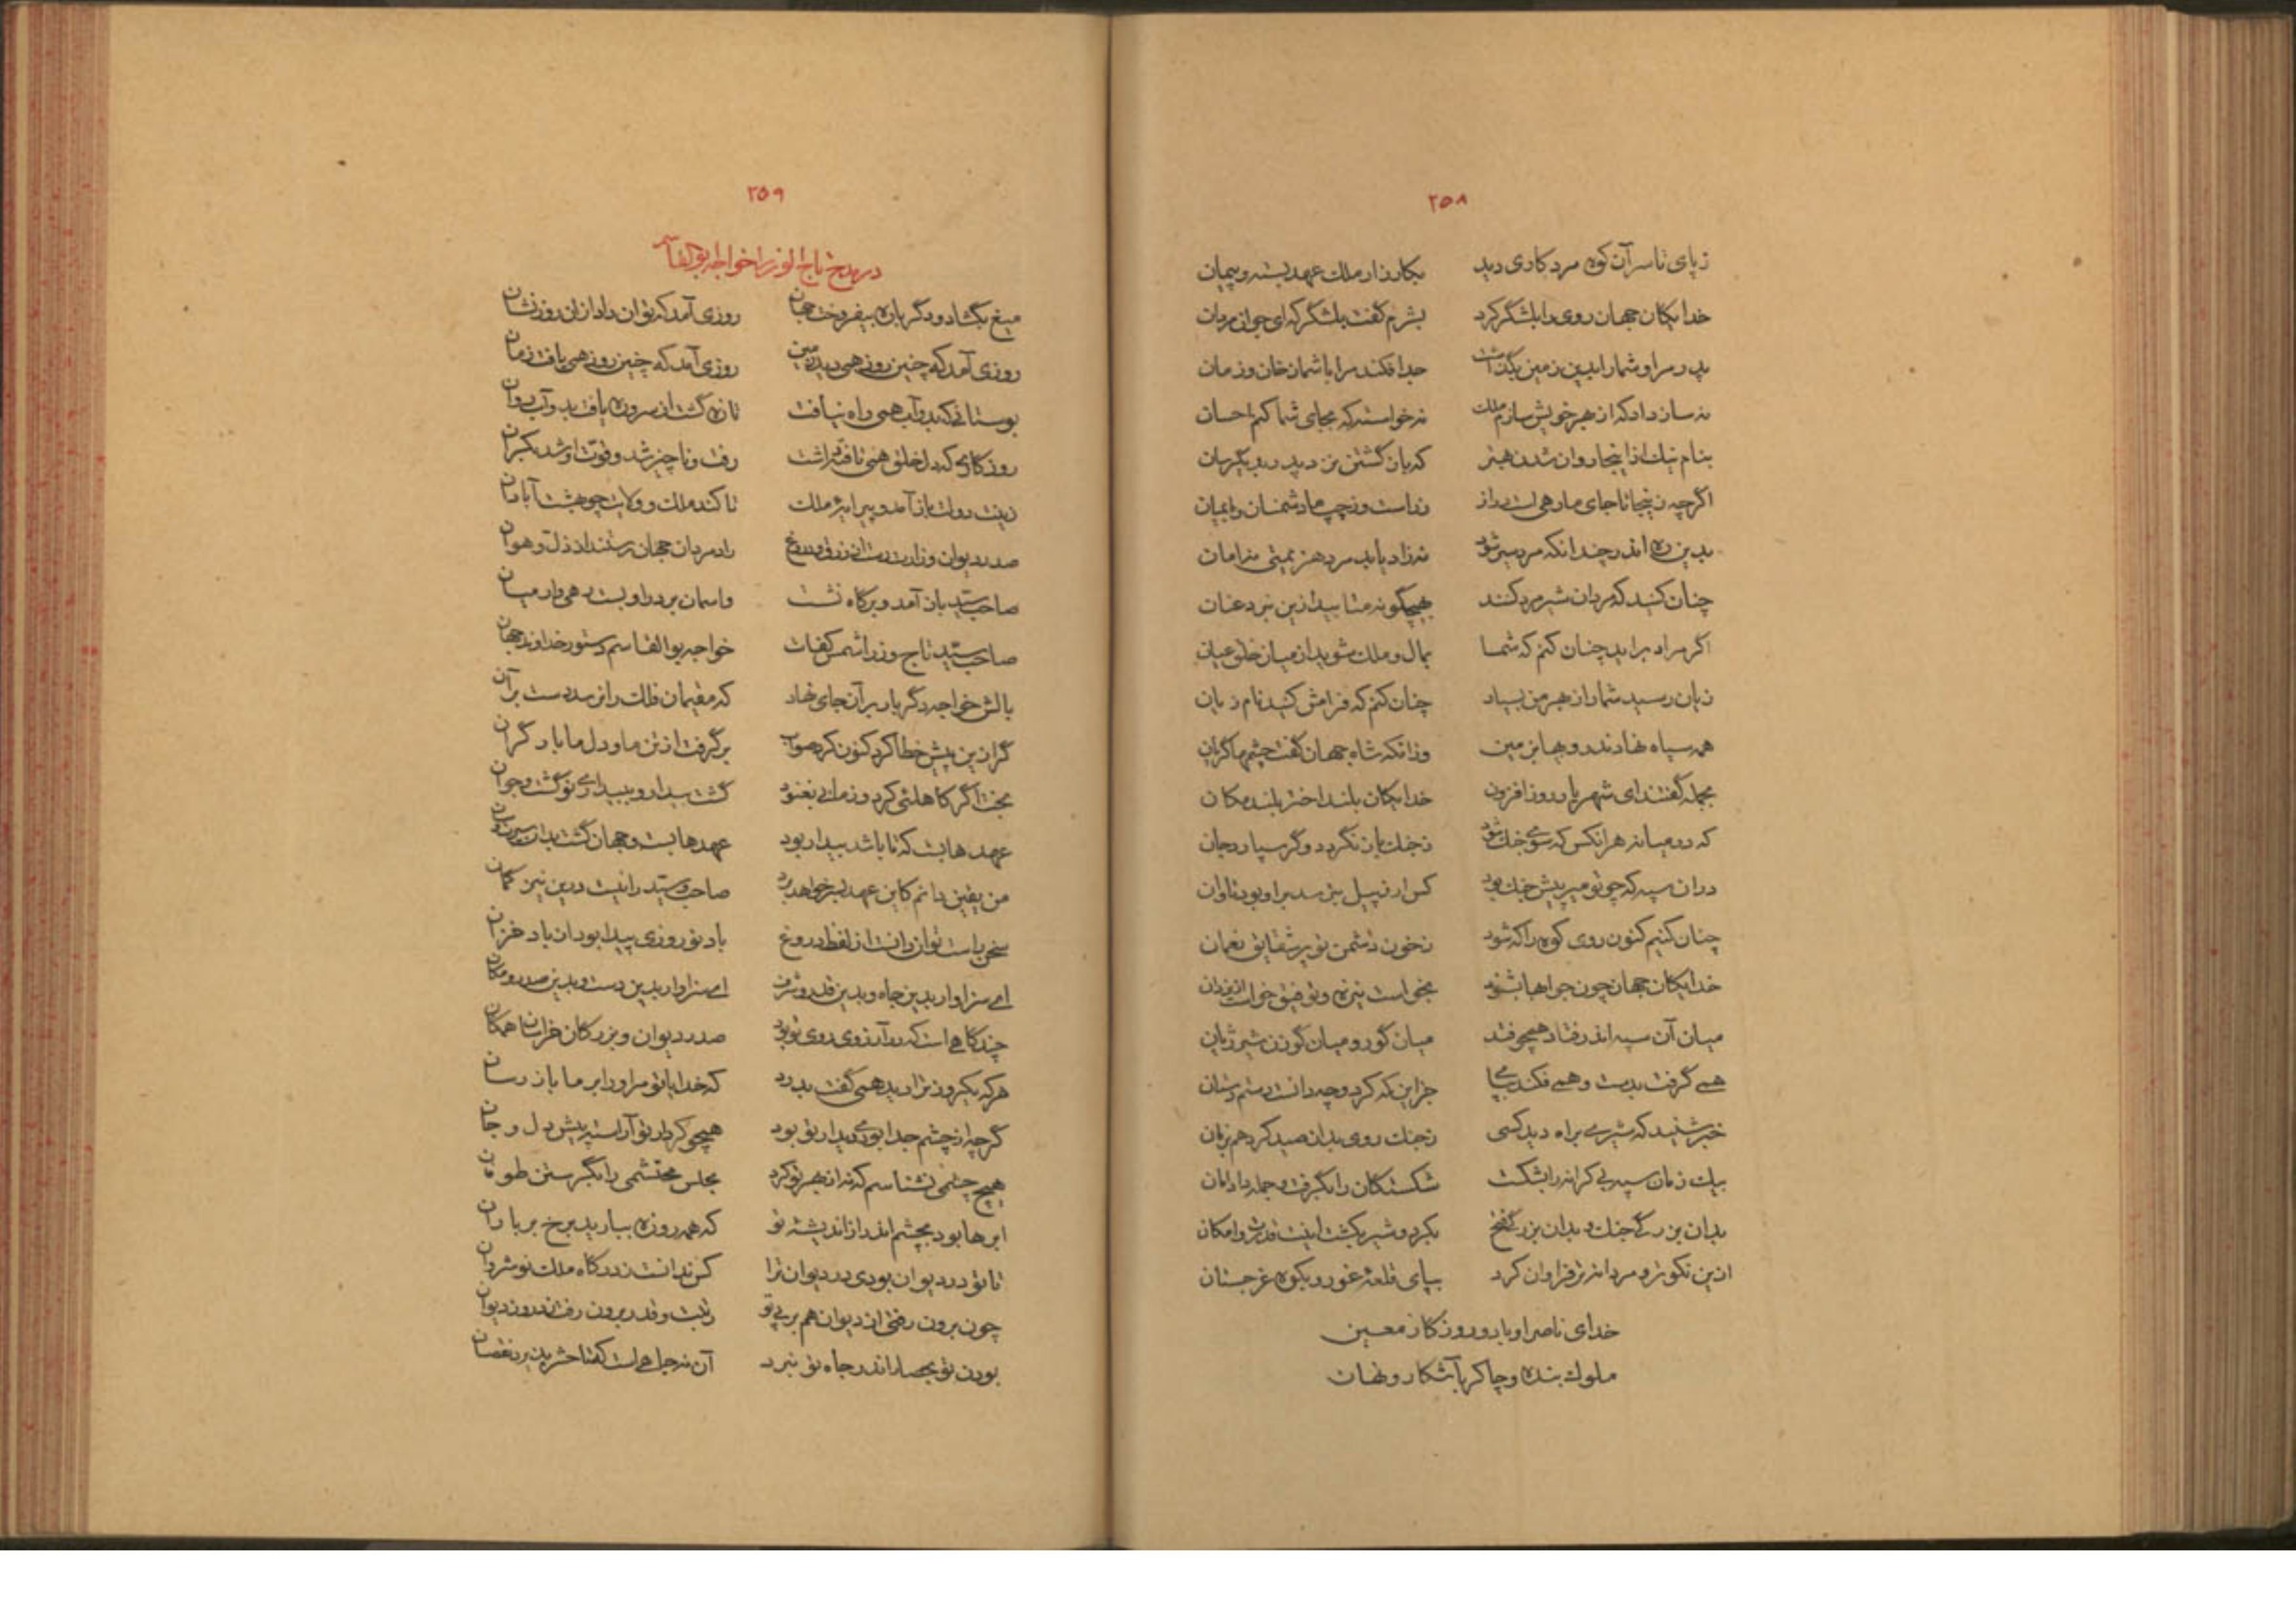 ۲۵۸
ز پای تا سر آن کوه مرد کاری دید بکارزار ملک عهد بسته و پیمان
خدایگان جهان روی را بلشگر کرد بشرم گفت بلشگر که ای جوانمردان
پدر مرا و شما را بدین زمین بگذاشت جدا فکند مرا با شما ز خان و زمان
نه ساز داد که از بهر خویش سازم ملک نه خواسته که بجای شما کنم احسان
بنام نیک از اینجا روان شدن بهتر که بازگشتن نزدیک پدر
اگرچه زینجا تا جای ما رهی است دراز ز راست و ز چپ ما دشمنان
بدین ره اندر چندانکه مرد سیر شود نه زاد یابد مرد هزیمتی نه امان
چنان کنید که مردان شیر مرد کنند بهیچگونه متابید ازین نبرد عنان
اگر مراد برآید چنان کنم که شما بمال و ملک شوید از میان خلق عیان
زیان رسید شما را ز بهر من بسیار چنان کنم که فرامش کنید نام زیان
همه سپاه نهادند رویها بزمین وزانکه شاه جهان گفت چشمها گریان
بجمله گفتند ای شهریار روز افزون خدایگان بلند اختر بلند مکان
که در میانه هر آنکس که سوی جنگ شود ز جنگ باز نگردد و گر سپارد جان
در آن سپه که چو تو میر پیش جنگ بود کس ار ز پیل بترسد بر او بود تاوان
چنان کنیم کنون روی کوه را که شود ز خون دشمن تو پر شقایق نعمان
خدایگان جهان چون جوابها بشنود بخواست نیزه و توفیق خواست از یزدان
میان آن سپه اندر فتاد همچو فتد میان گور و میان گوزن شیر ژیان
همی گرفت بدست و همی فکند بپا جز این که کرد و چه دانست رستم دستان
خبر شنید که شیری براه دید کسی ز جنگ روی بدان صید کرد هم بزمان
بیک زمان سپه بی کرانه را بشکست شکستگان را بگرفت و جمله داد امان
بدان بزرگی جنگ و بدان بزرگی فتح بکرد و شیر بکشت اینت قدرت و امکان
ازین نکوتر و مردانه تر فراوان کرد بپای قلعهٔ غور و بکوه غرجستان
خدای ناصر او باد و روزگار معین
ملوک بنده و چاکر بآشکار و نهان
۲۵۹
در مدح تاج الوزرا خواجه بوالقاسم
میغ بگشاد و دگر باره بیفروخت جهان روزی آمد که توان داد از ان روز نشان
روزی آمد که چنین روز همی دید زمین روزی آمد که چنین روز همی یافت زمان
بوستانی که بدو آب همی راه نیافت تازه گشت از سر و ره یافت بدو آب روان
روزگاری که دل خلق همی تافته داشت رفت و ناچیز شد و قوّت او شد بکران
زینت دولت باز آمد و پیرایهٔ ملک تا کند ملک و ولایت چو بهشت آبادان
صدر دیوان وزارت رست از زرق و دروغ رادمردان جهان رستند از ذلّ و هوان
صاحب سید باز آمد و بر گاه نشست واسمان بر در او بست رهی وار میان
صاحب سید تاج وزرا شمس کفات خواجه بوالقاسم دستور خداوند جهان
بالش خواجه دگر بار بر آن جای نهاد که مقیمان فلک را نرسد دست بر آن
گر ازین پیش خطا کرد کنون کرد صواب برگرفت از تن ما و دل ما بار گران
بخت اگر کاهلئی کرد و زمانی بغنود گشت بیدار و ببیداری نو گشت و جوان
عهدهاییست که تا باشد بیدار بود عهدهاییست و جهان گشت بدان
من یقین دانم کاین عهد بسر خواهد برد صاحب سید را نیست درین نیز گمان
سخن راست توان دانست از لفظ دروغ باد نوروزی پیدا بود از باد خزان
ای سزاوار بدین جاه و بدین قدر و شرف ای سزاوار بدین دست و بدین صدر و مکان
چند گاهی است که در آرزوی روی تو بود صدر دیوان و بزرگان خراسان همگان
هر که یکروز ترا دید همی گفت بدرد که خدایا تو مر او را بر ما باز رسان
گرچه از چشم جدا بودی دیدار تو بود همچو کردار تو آراسته پیش دل و جان
هیچ چشمی نشناسم که نه از بهر تو کرد مجلس محتشمی را بگرستن طوفان
ابرها بود بچشم اندر از اندیشهٔ تو که همه روزه ببارید برخ بر باران
تا تو در دیوان بودی در دیوان ترا کس ندانست ز درگاه ملک نوشروان
چون برون رفتی از دیوان هم بر پی تو زینت و قدر برون رفت ز در و ز دیوان
بودن تو بحصار اندر جاه تو نبرد آن نه جاهی است که تا حشر پذیرد نقصان